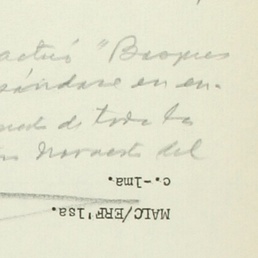 actuó "Bosques
sándose en en-
de toda la
Noroeste del
MALC/ERF'lsa.
c.-lma.